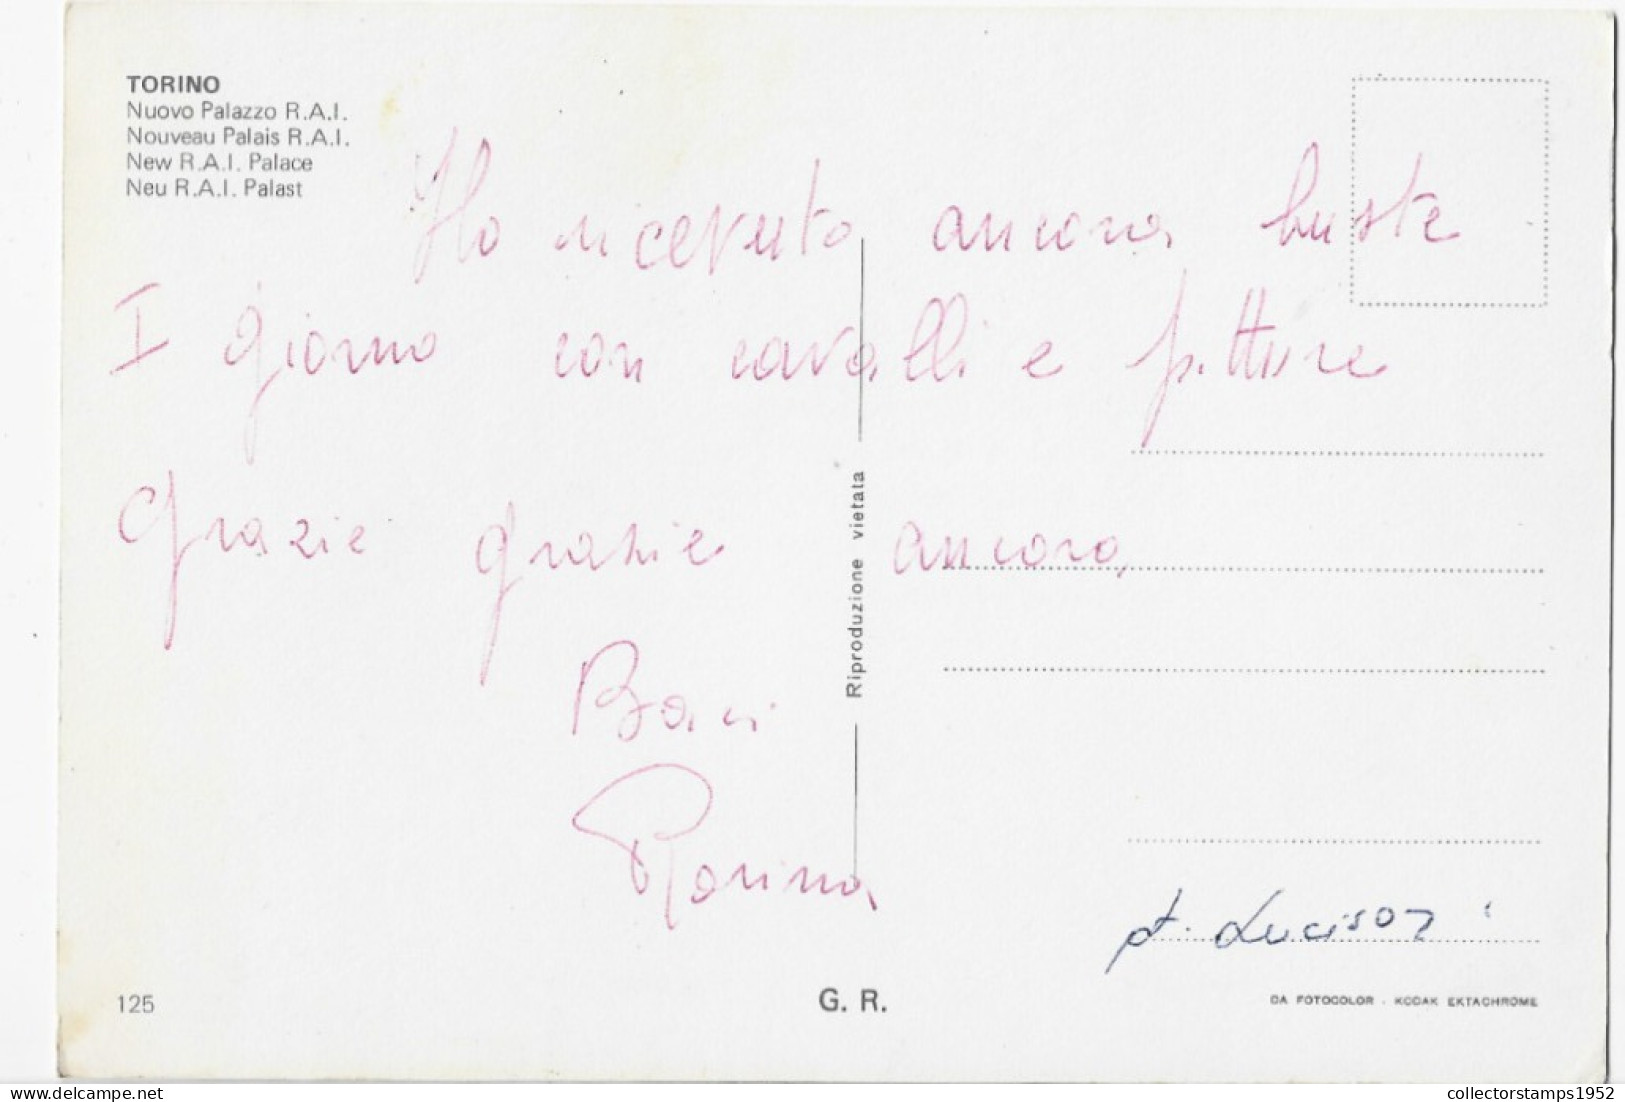 TORINO
Nuovo Palazzo R.A.I.
Nouveau Palais R.A.I.
New R.A.I. Palace
Neu R.A.I. Palast
Ho ricevuto ancora buste
I giorno con cavalli e pitture
Grazie grazie ancora,
Baci
Riproduzione vietata
125
G. R.
DA FOTOCOLOR - KODAK EKTACHROME
delcampe.net
collectorstamps1952